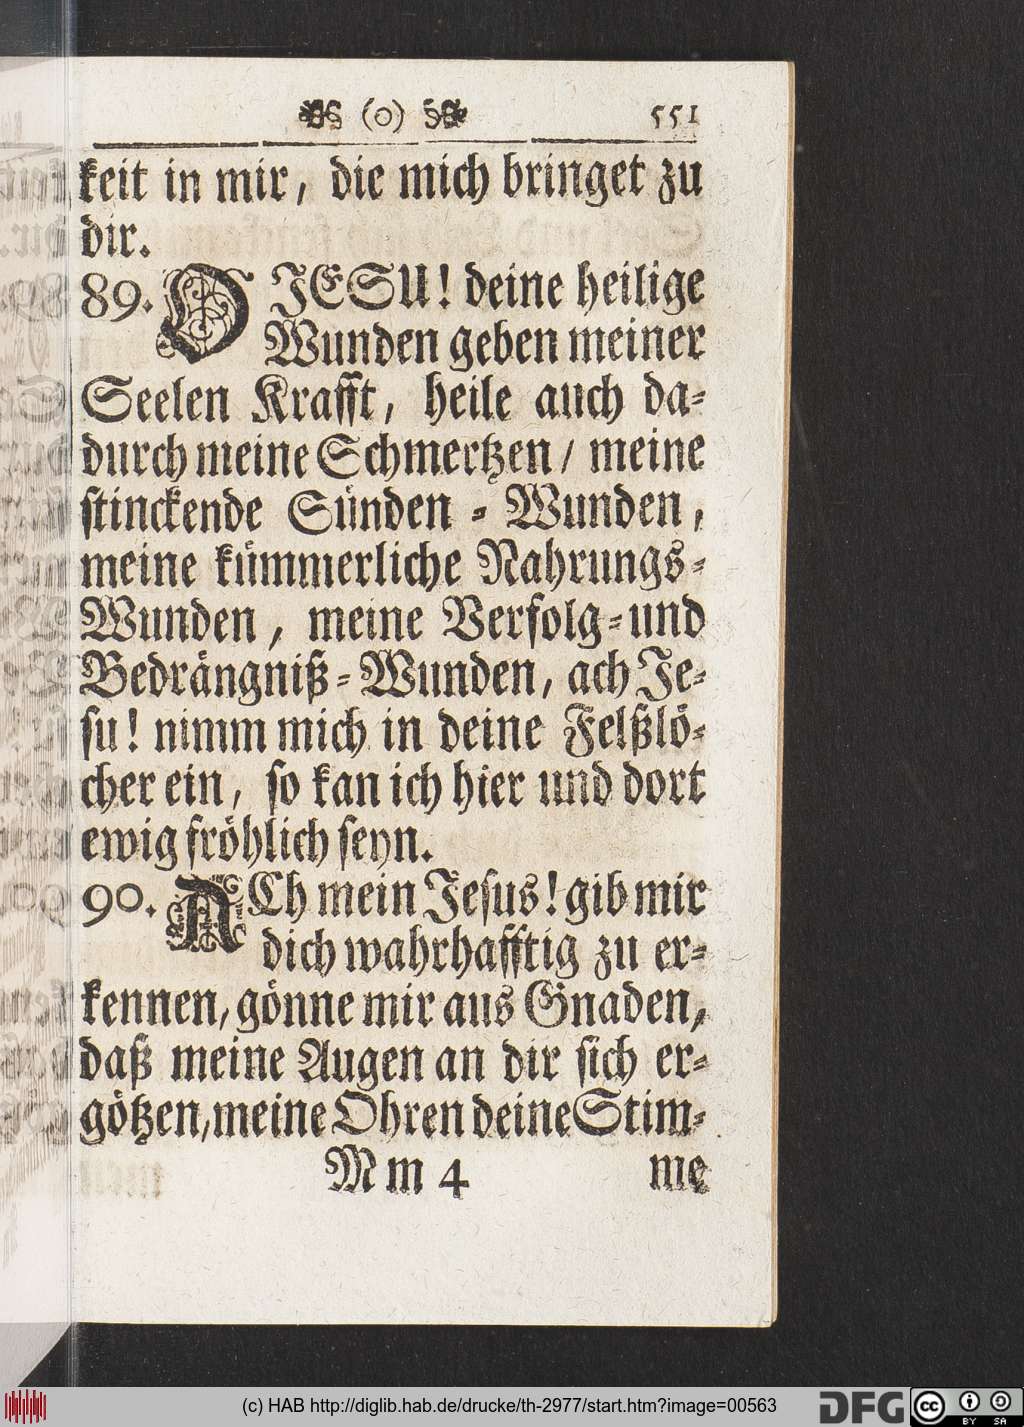 (o) 551
keit in mir, die mich bringet zu
dir.
89. O JESU! deine heilige
Wunden geben meiner
Seelen Krafft, heile auch da-
durch meine Schmertzen / meine
stinckende Sünden - Wunden,
meine kümmerliche Nahrungs-
Wunden, meine Verfolg- und
Bedrängniß - Wunden, ach Je-
su! nimm mich in deine Felßlö-
cher ein, so kan ich hier und dort
ewig fröhlich seyn.
90. ACh mein Jesus! gib mir
dich wahrhafftig zu er-
kennen, gönne mir aus Gnaden,
daß meine Augen an dir sich er-
götzen, meine Ohren deine Stim-
Mm 4 me
(c) HAB http://diglib.hab.de/drucke/th-2977/start.htm?image=00563
DFG cc BY SA